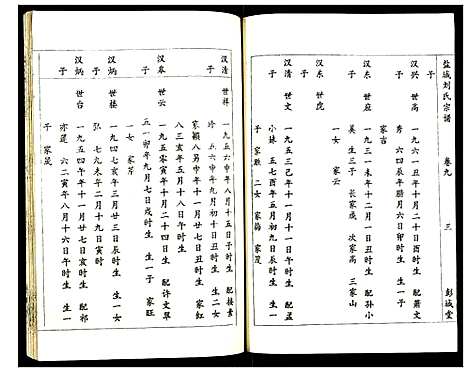 盐城刘氏宗谱 卷九 三 彭城堂
汉兴 世高 一九六一年十月十二日酉时生 配萧文
秀 六四辰年腊月六日卯时生 生一子
子 家吉
汉东 世府 一九三一未年十二月一日丑时生 配孙小
英 生三子 长家成 次家高 三家山
汉东 世虎 一女 家云
汉清 世文 一九五三巳年十一月一日子时生 配孟
小妹 五七酉年五月初九日辰时生
子 家胜 二女 家梅 家茂
汉清 世祥 一九五六申年八月十五日子时生 配接素
玲 五六申年九月初十日丑时生 生二女
子 家颖 八男申年十一月廿日丑时生 家红
八三亥年五月十八日午时生
汉卓 世云 一九五八年十二月廿四日亥时生 配许文翠
五一卯年九月七日戌时生 生一子 家旺
一女 家芹
汉炳 世楼 一九四七亥年三月廿三日辰时生 生一女
子 弘 七九未年二月十九日寅时
汉炳 世台 一九五四午年十一月廿七日亥时生 配祁
亦莲 六二寅年八月十六日午时生 生一
子 家茂